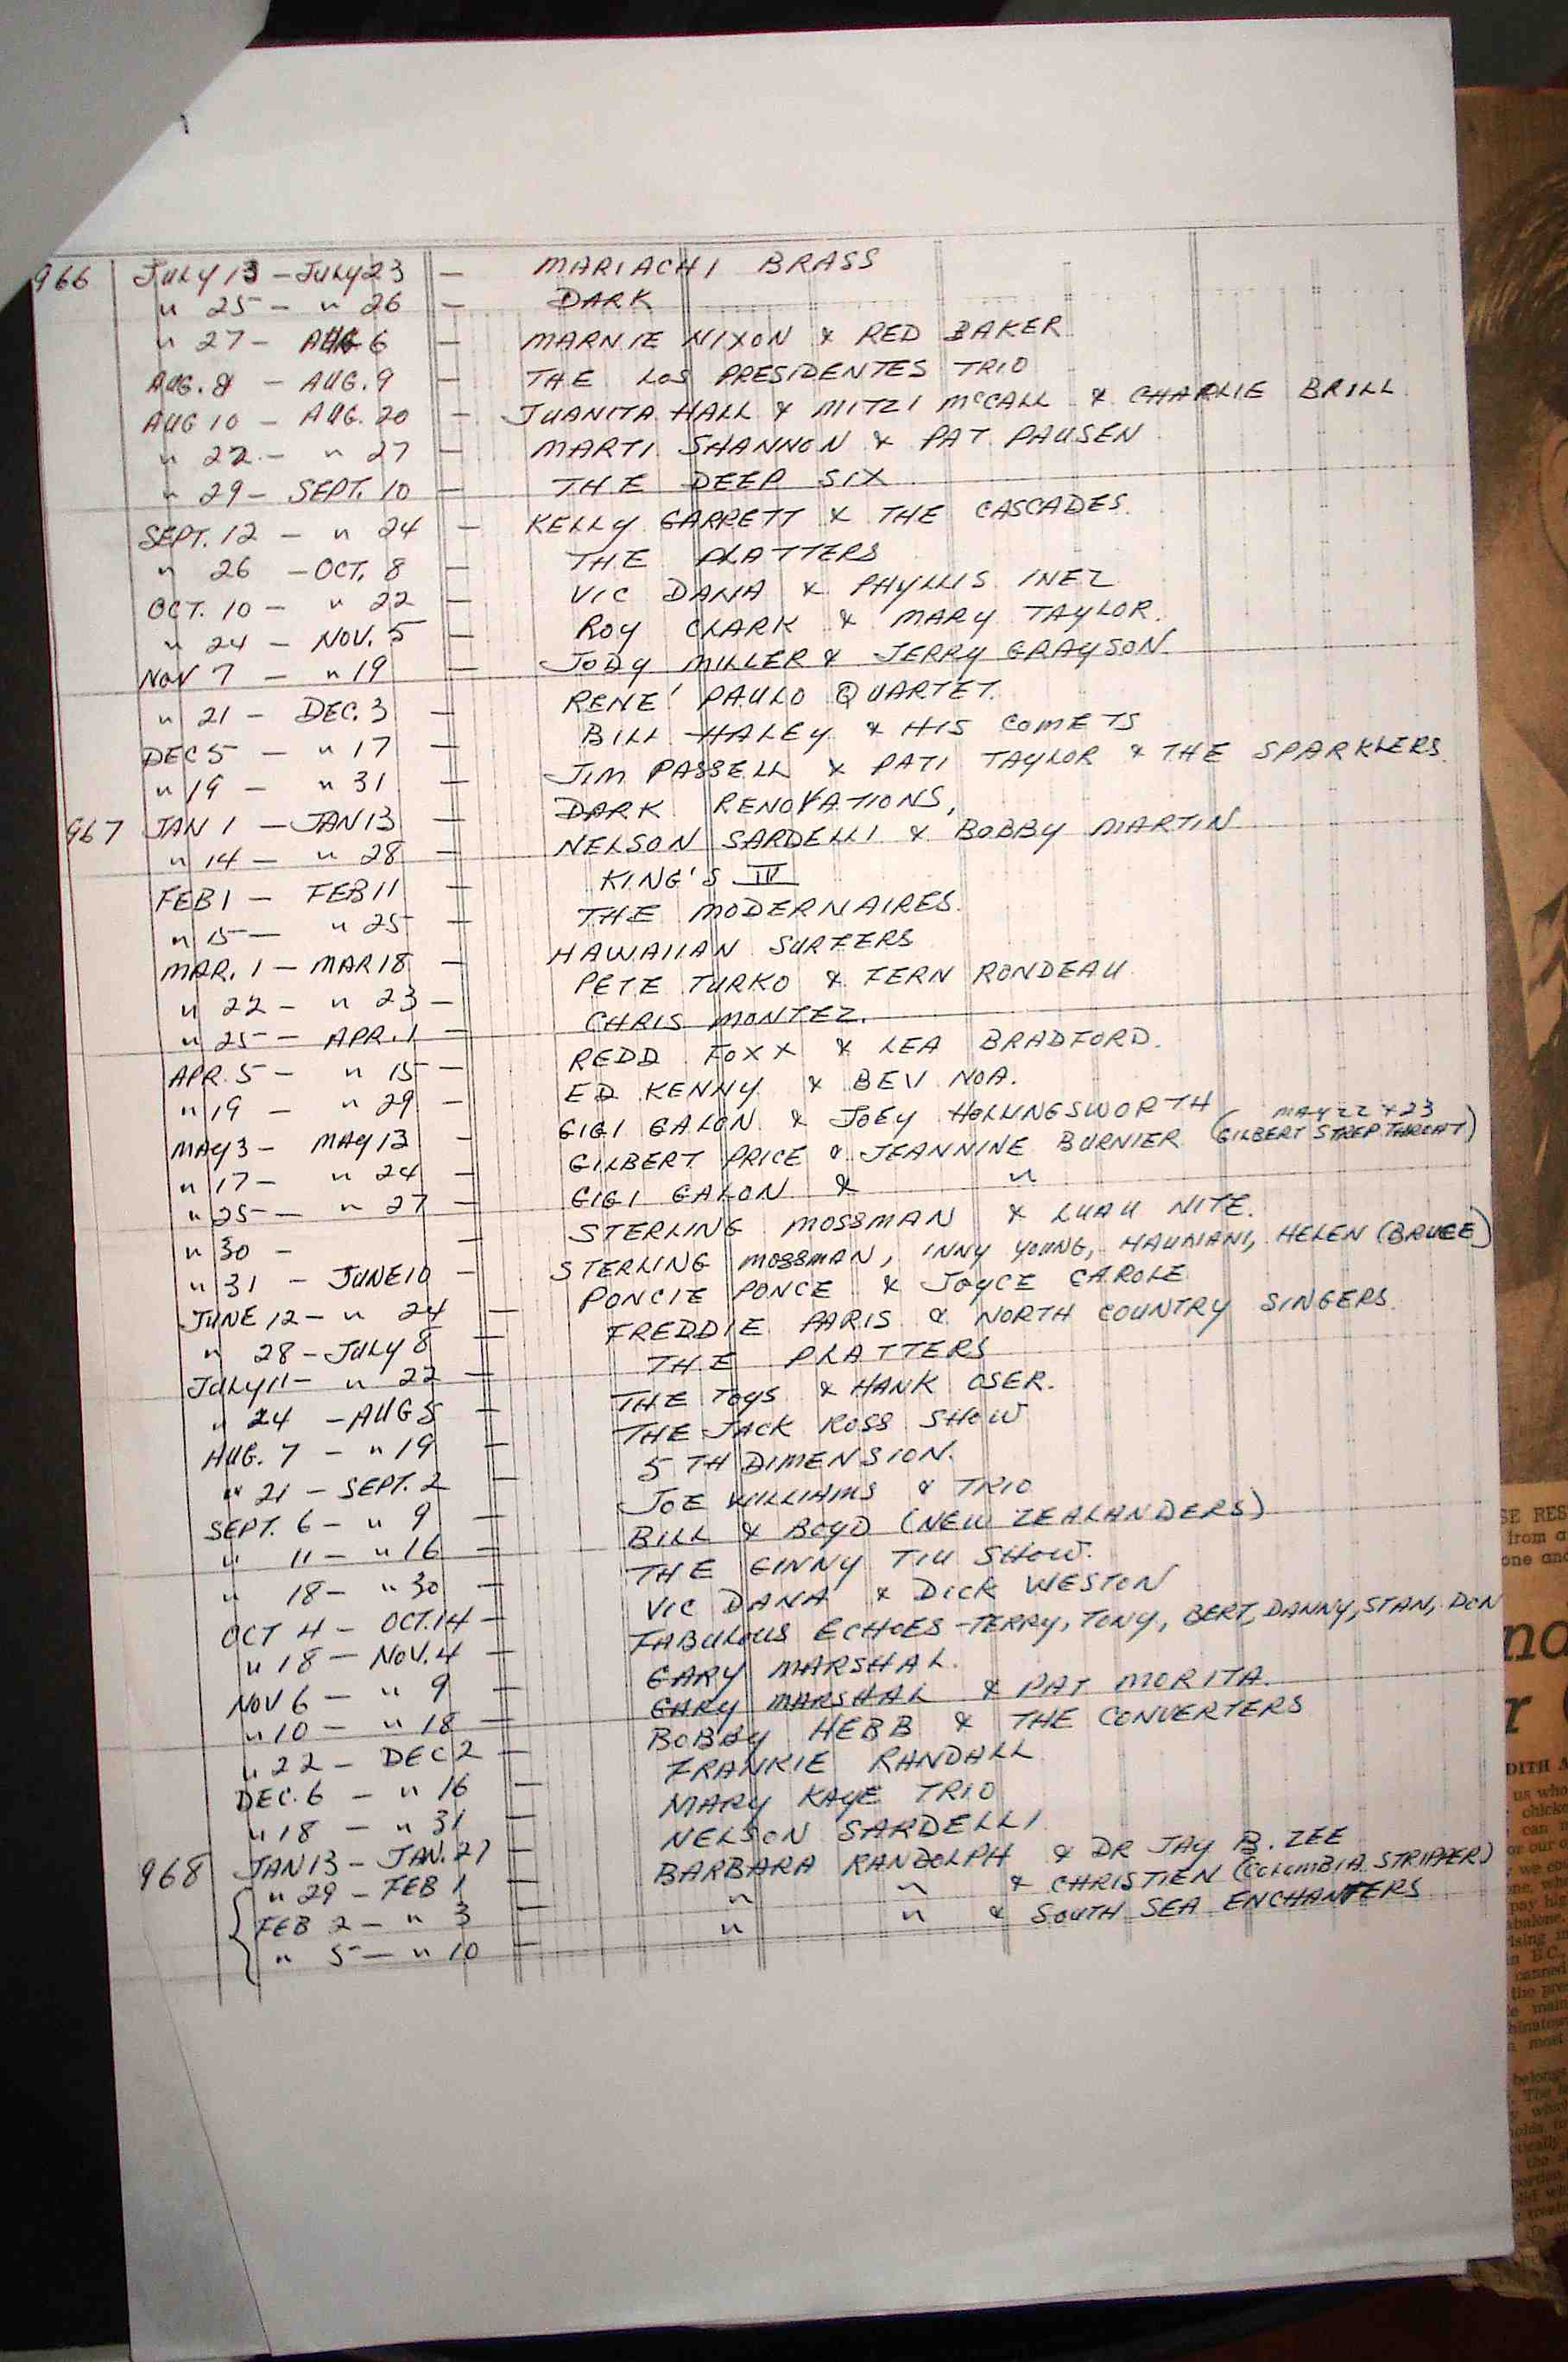 966 JULY 13 - JULY 23 - MARIACHI BRASS
" 25 - " 26 - DARK
" 27 - AUG 6 - MARNIE NIXON & RED BAKER
AUG. 8 - AUG. 9 - THE LOS PRESIDENTES TRIO
AUG 10 - AUG. 20 - JUANITA HALL & MITZI McCALL & CHARLIE BRILL
" 22 - " 27 - MARTI SHANNON & PAT PAUSEN
" 29 - SEPT. 10 - THE DEEP SIX
SEPT. 12 - " 24 - KELLY GARRETT & THE CASCADES.
" 26 - OCT. 8 - THE PLATTERS
OCT. 10 - " 22 - VIC DANA & PHYLLIS INEZ
" 24 - NOV. 5 - ROY CLARK & MARY TAYLOR.
NOV 7 - " 19 - JODY MILLER & JERRY GRAYSON.
" 21 - DEC. 3 - RENE' PAULO QUARTET.
DEC 5 - " 17 - BILL HALEY & HIS COMETS
" 19 - " 31 - JIM PASSELL & PATI TAYLOR & THE SPARKLERS.
967 JAN 1 - JAN 13 - DARK RENOVATIONS,
" 14 - " 28 - NELSON SARDELLI & BOBBY MARTIN
FEB 1 - FEB 11 - KING'S IV
" 15 - " 25 - THE MODERNAIRES.
MAR. 1 - MAR 18 - HAWAIIAN SURFERS
" 22 - " 23 - PETE TURKO & FERN RONDEAU
" 25 - APR. 1 - CHRIS MONTEZ.
APR. 5 - " 15 - REDD FOXX & LEA BRADFORD.
" 19 - " 29 - ED KENNY & BEV NOA.
MAY 3 - MAY 13 - GIGI GALON & JOEY HOLLINGSWORTH
" 17 - " 24 - GILBERT PRICE & JEANNINE BURNIER (MAY 22 & 23 GILBERT STREP THROAT)
" 25 - " 27 - GIGI GALON & "
" 30 - - STERLING MOSSMAN & LUAU NITE.
" 31 - JUNE 10 - STERLING MOSSMAN, INNY YOUNG, HAUNANI, HELEN (BRUCE)
JUNE 12 - " 24 - PONCIE PONCE & JOYCE CAROLE
" 28 - JULY 8 - FREDDIE PARIS & NORTH COUNTRY SINGERS.
JULY 11 - " 22 - THE PLATTERS
" 24 - AUG 5 - THE TOYS & HANK OSER.
AUG. 7 - " 19 - THE JACK ROSS SHOW
" 21 - SEPT. 2 - 5TH DIMENSION.
SEPT. 6 - " 9 - JOE WILLIAMS & TRIO
" 11 - " 16 - BILL & BOYD (NEW ZEALANDERS)
" 18 - " 30 - THE GINNY TIU SHOW.
OCT 4 - OCT. 14 - VIC DANA & DICK WESTON
" 18 - NOV. 4 - FABULOUS ECHOES - TERRY, TONY, BERT, DANNY, STAN, DON
NOV 6 - " 9 - GARY MARSHAL.
" 10 - " 18 - GARY MARSHAL & PAT MORITA.
" 22 - DEC 2 - BOBBY HEBB & THE CONVERTERS
DEC. 6 - " 16 - FRANKIE RANDALL
" 18 - " 31 - MARY KAYE TRIO
968 JAN 13 - JAN. 27 - NELSON SARDELLI
" 29 - FEB 1 - BARBARA RANDOLPH & DR JAY B. ZEE
FEB 2 - " 3 - " " & CHRISTIEN (COLUMBIA STRIPPER)
" 5 - " 10 - " " & SOUTH SEA ENCHANTERS